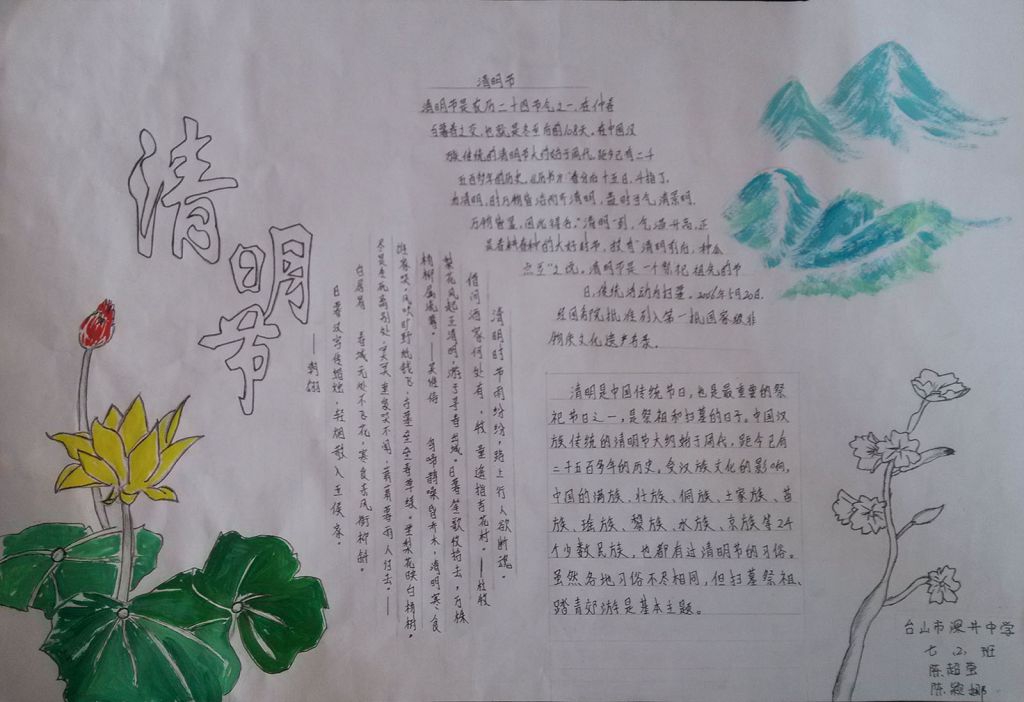 清明节
清明节
清明节是农历二十四节气之一,在仲春
与暮春之交,也就是冬至后的108天。在中国汉
族传统的清明节大约始于周代,距今已有二千
五百多年的历史。《历书》:"春分后十五日,斗指丁,
为清明,时万物皆洁齐而清明,盖时当气清景明,
万物皆显,因此得名。"清明一到,气温升高,正
是春耕春种的大好时节,故有"清明前后,种瓜
点豆"之说。清明节是一个祭祀祖先的节
日,传统活动为扫墓。2006年5月20日,
经国务院批准列入第一批国家级非
物质文化遗产名录。
清明时节雨纷纷,路上行人欲断魂。
借问酒家何处有,牧童遥指杏花村。——杜牧
梨花风起正清明,游子寻春半出城。日暮笙歌收拾去,万株
杨柳属流莺。——吴惟信 乌啼鹊噪昏乔木,清明寒食
谁家哭。风吹旷野纸钱飞,古墓垒垒春草绿。棠梨花映白杨树,
尽是死生离别处。冥冥重泉哭不闻,萧萧暮雨人归去。——
白居易 春城无处不飞花,寒食东风御柳斜。
日暮汉宫传蜡烛,轻烟散入五侯家。
——韩翃
清明是中国传统节日,也是最重要的祭
祀节日之一,是祭祖和扫墓的日子。中国汉
族传统的清明节大约始于周代,距今已有
二千五百多年的历史。受汉族文化的影响,
中国的满族、壮族、侗族、土家族、苗
族、瑶族、黎族、水族、京族等24
个少数民族,也都有过清明节的习俗。
虽然各地习俗不尽相同,但扫墓祭祖、
踏青郊游是基本主题。
台山市深井中学
七(2)班
陈超莹
陈婉娜